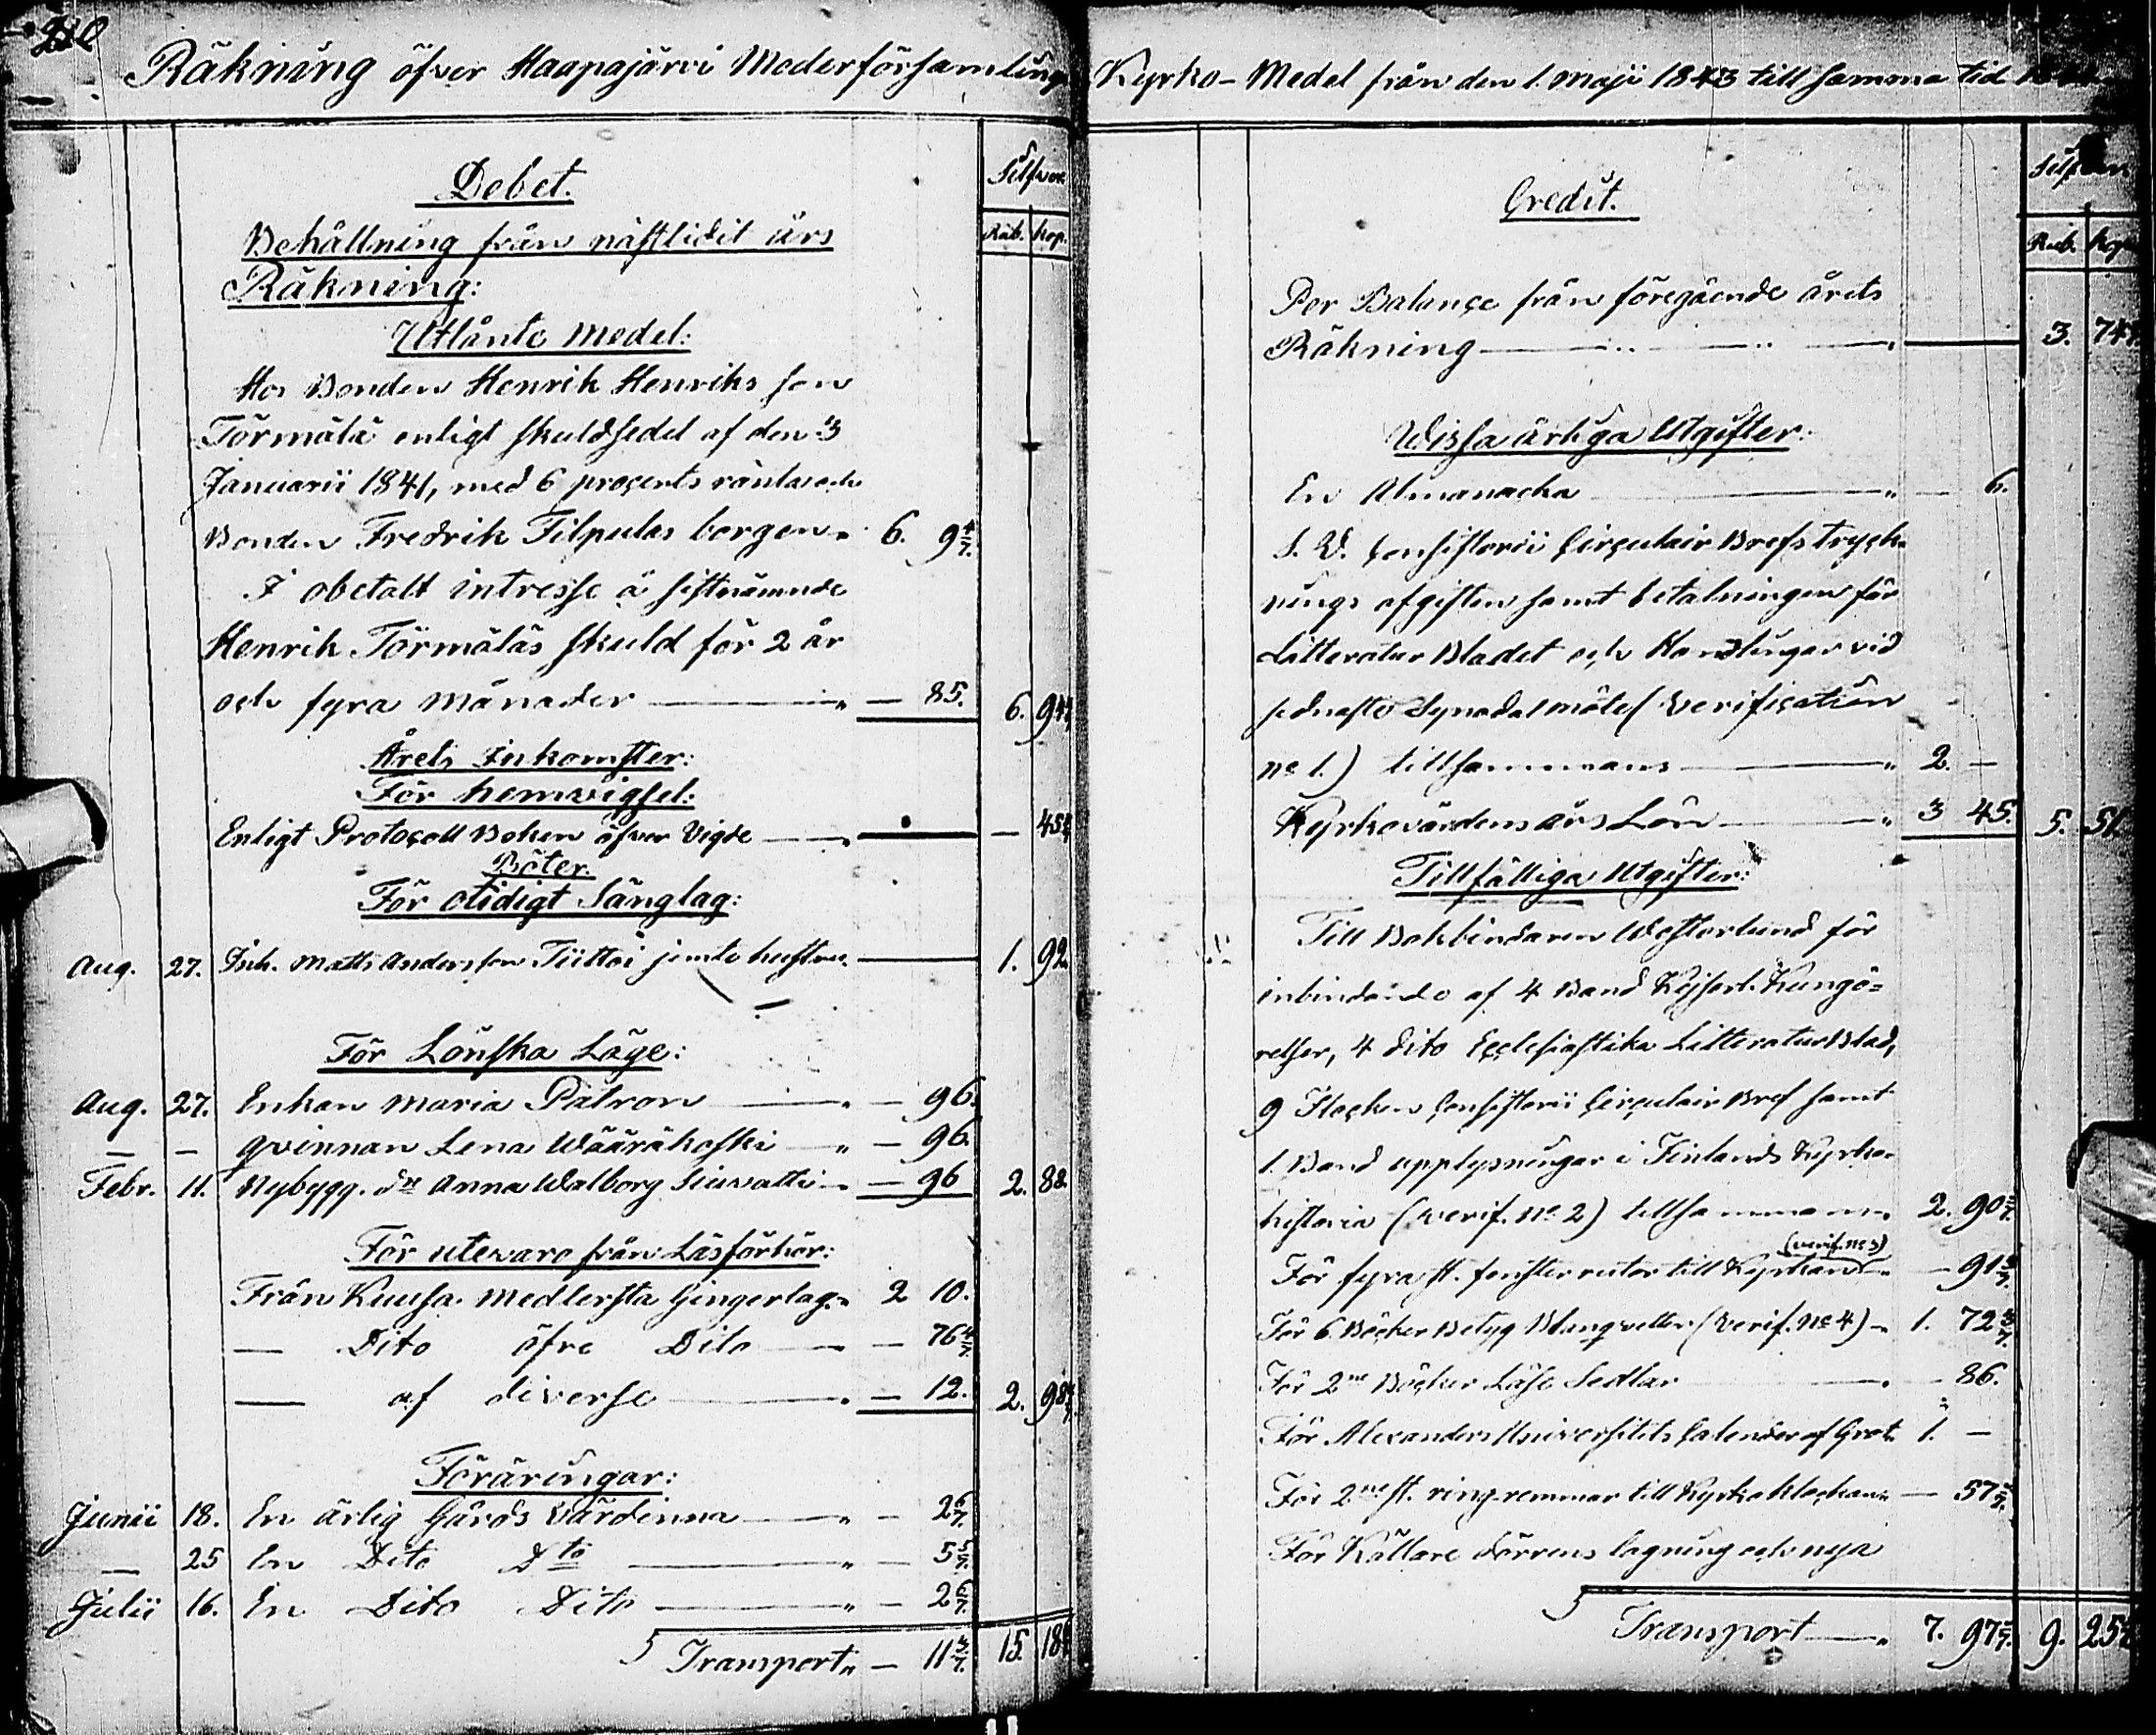 210
Räkning öfver Haapajärvi Moderförsamlings
Debet.
Silfver.
Rub. Kop.
Behållning från nästlidit års
Räkning:
Utlånte medel:
Hos Bonden Henrik Henriks son
Törmälä enligt skuldsedel af den 3
Januarii 1841, med 6 procents ränta och
Bonden Fredrik Tilpulas borgen " 6. 9 4/7.
I obetalt intresse å sistnämnde
Henrik Törmäläs skuld för 2 år
och fyra månader " — 85. 6. 94
Årets Inkomster:
För hemvigsel:
Enligt Protocoll Boken öfver Vigde — 45
Böter.
För otidigt Sänglag:
Aug. 27. Inh. Matts Andersson Tiitto jemte hustru 1. 92
För Lönska Läge:
Aug. 27. Enkan Maria Patron " — 96.
— — Qvinnan Lena Wääräkoski " — 96.
Febr. 11. Nybygg. dr Anna Walborg — 96 2. 88.
För utevaro från Läsförhör:
Från Kuusa Medlersta Gingerlag " 2 10.
— Dito öfre Dito — 76 4/7.
— af diverse " — 12. 2. 98
Föräringar:
Junii 18. En ärlig Gårds Värdinna " — 2 6/7.
— 25 En Dito Dto " — 5 5/7.
Julii 16. En Dito Dito " — 2 6/7.
Transport " — 11 3/7. 15. 18
Kyrko-Medel från den 1. Maji 1843 till samma tid
Credit.
Silfver
Rub. Kop.
Per Balance från föregående årets
Räkning 3. 74
Wissa årliga Utgifter:
En Almanacka " — 6.
S. V. Consistorii Circulair Brefs tryck-
nings afgiften samt betalningen för
Litteratur Bladet och Handlingar vid
sednaste Synodalmöte (Verification
No 1.) tillsammans " 2. —
Kyrkovärdens års Lön " 3 45. 5. 51.
Tillfälliga Utgifter:
Till Bokbindaren Westerlund för
inbindande af 4 Band Kejserl. Kungö=
relser, 4 dito Ecclesiastika Litteratur Blad,
9 Häcken Consistorii Circulair Bref samt
1. Band upplysningar i Finlands Kyrko-
historia (verif. No 2) tillsammans 2. 90
(verif. No 3)
För fyra st. fönster rutor till Kyrkan " — 91
För 6 Böcker Betyg Blanqvetter (Verif. No 4) " 1. 72
För 2ne Böcker Läse Sedlar — 86.
För Alexanders Universitets Calender af Grot 1. —
För 2ne st. ring remmar till Kyrko klockan " — 57
För Källare dörrens lagning och nya
Transport " 7. 97 9. 25